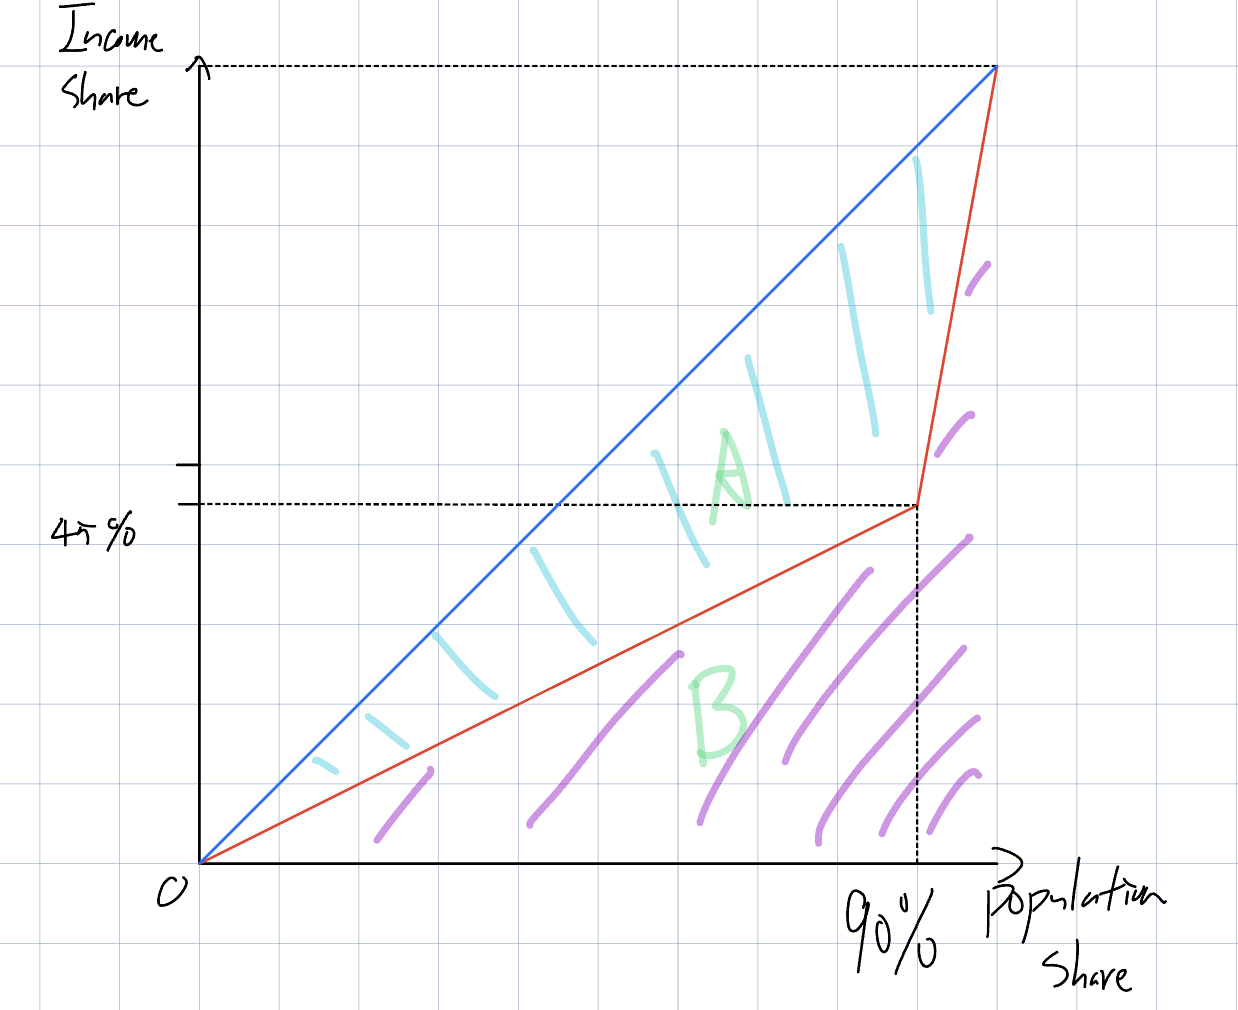 Income
Share
A
45%
B
0
90%
Population
Share